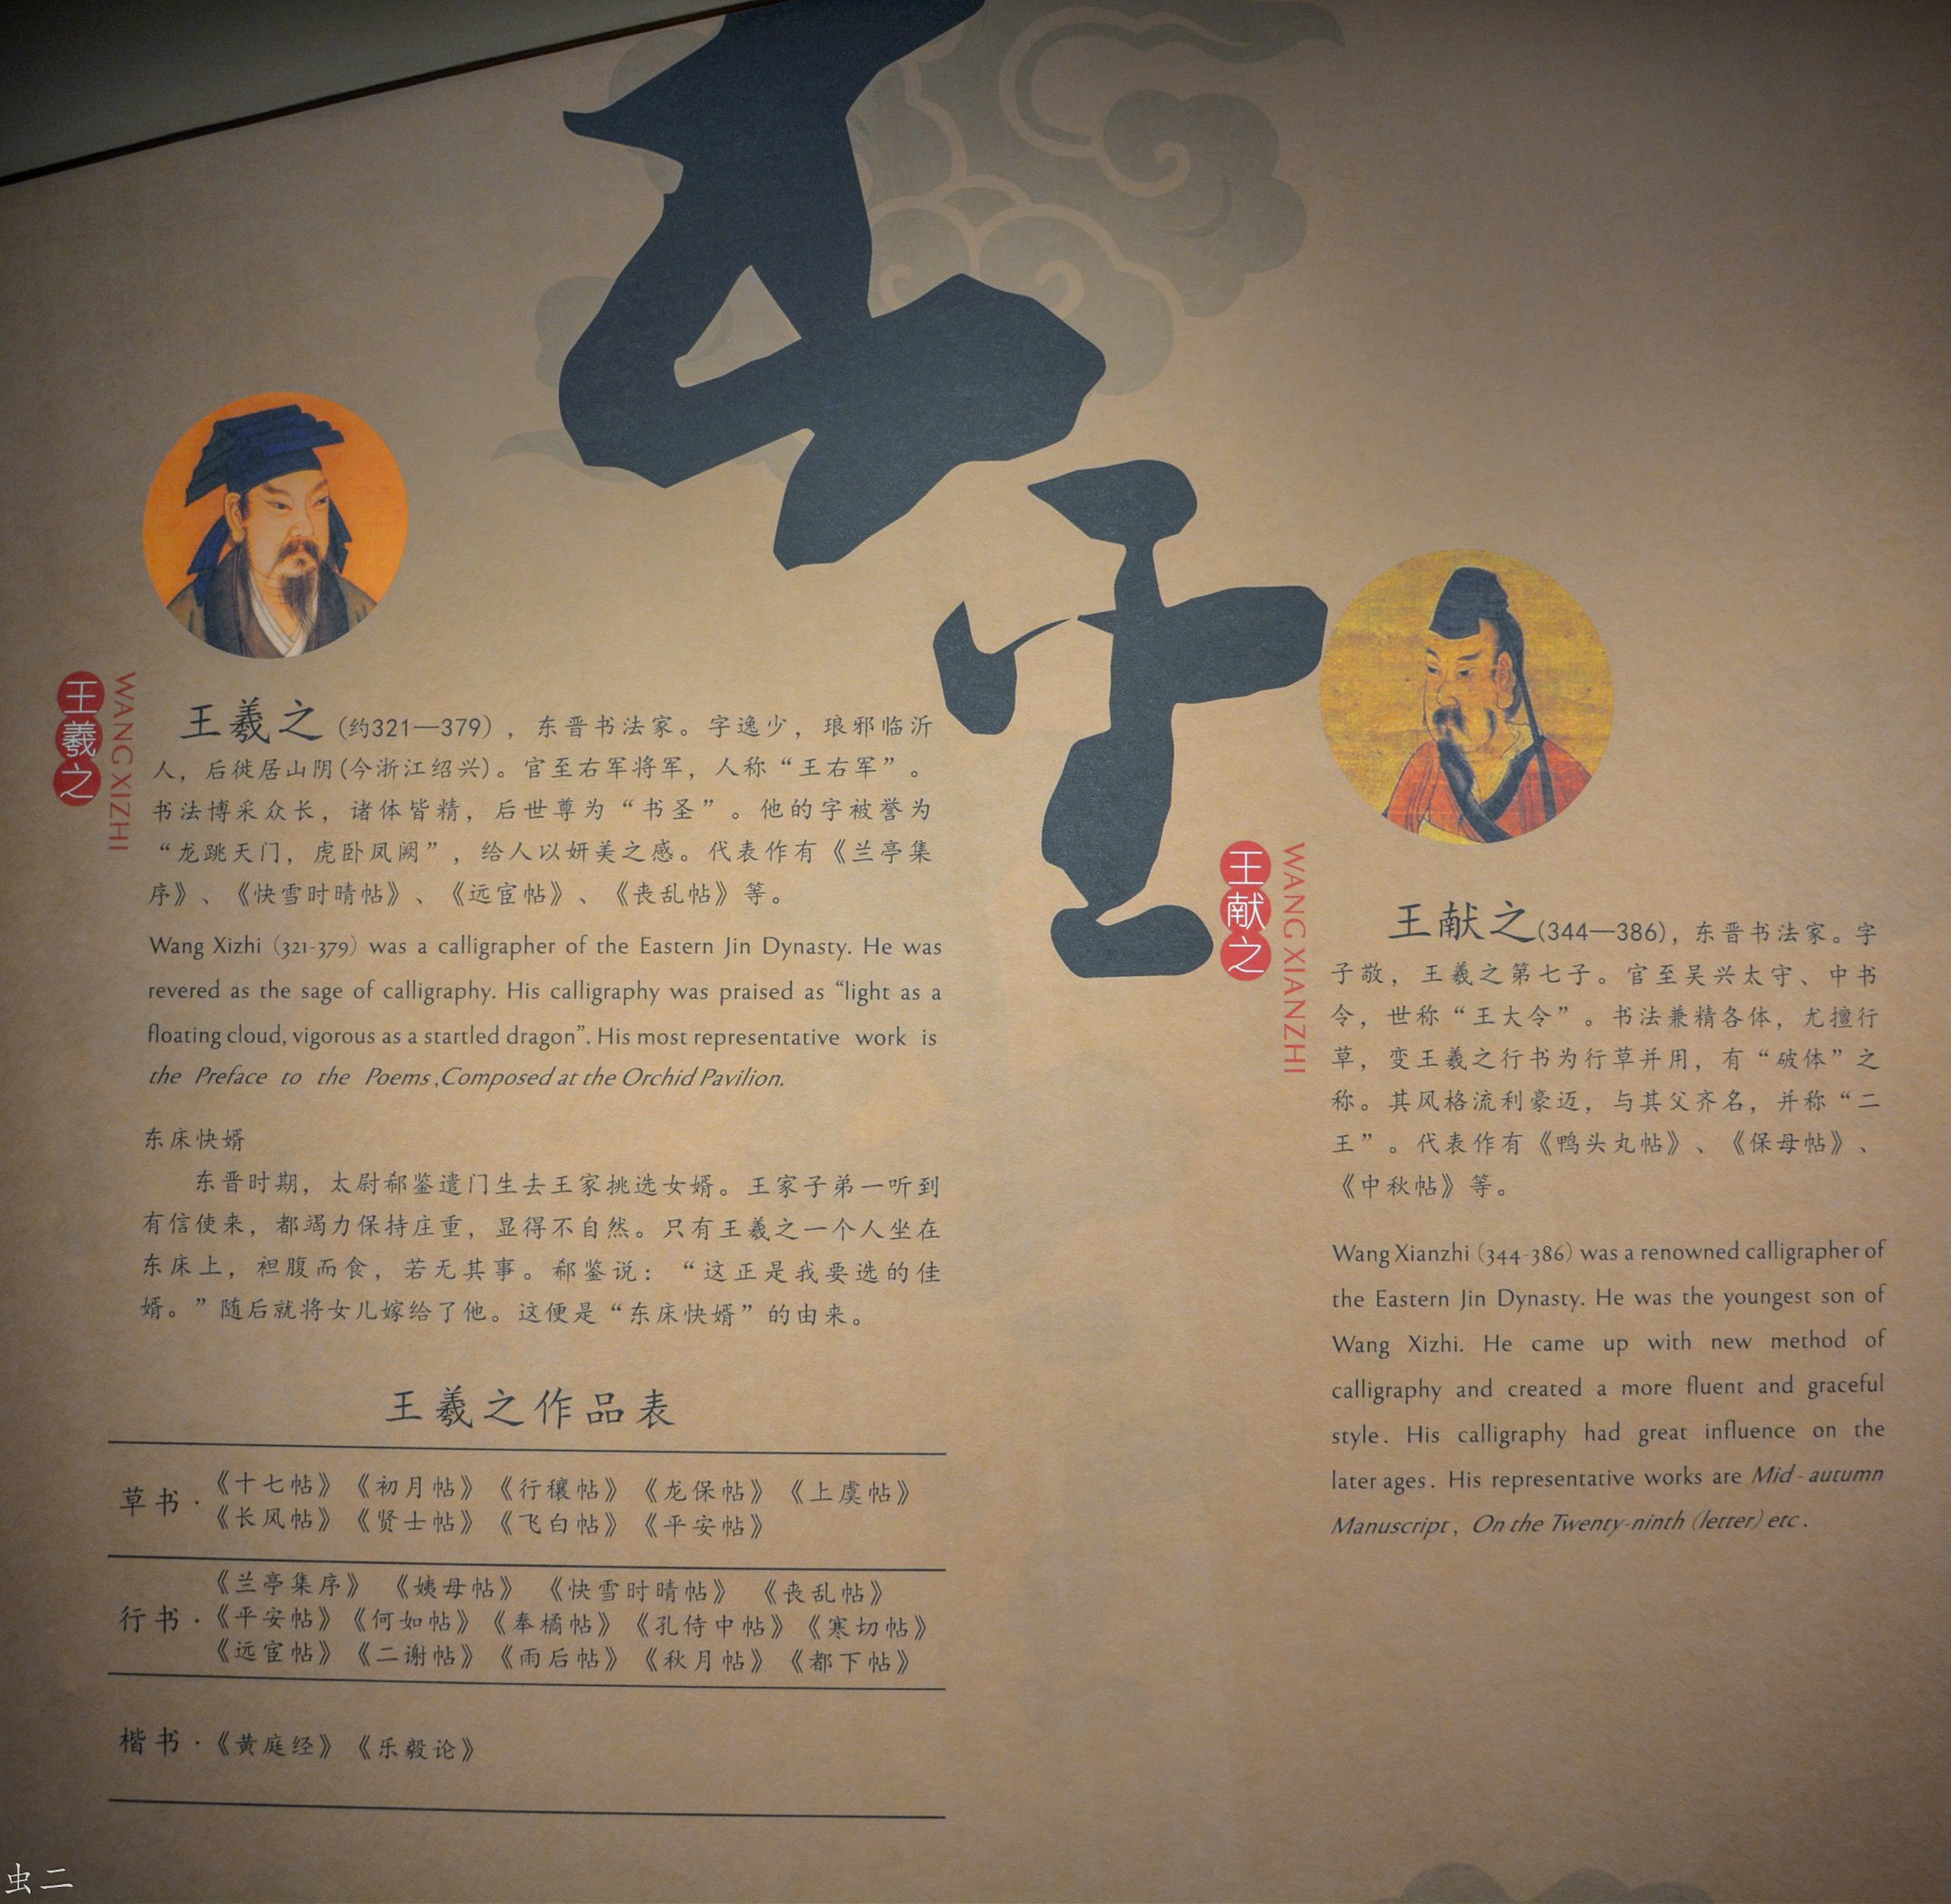 王羲之
WANG XIZHI
王羲之（约321—379），东晋书法家。字逸少，琅邪临沂
人，后徙居山阴(今浙江绍兴)。官至右军将军，人称“王右军”。
书法博采众长，诸体皆精，后世尊为“书圣”。他的字被誉为
“龙跳天门，虎卧凤阙”，给人以妍美之感。代表作有《兰亭集
序》、《快雪时晴帖》、《远宦帖》、《丧乱帖》等。
Wang Xizhi (321-379) was a calligrapher of the Eastern Jin Dynasty. He was
revered as the sage of calligraphy. His calligraphy was praised as “light as a
floating cloud, vigorous as a startled dragon”. His most representative work is
the Preface to the Poems ,Composed at the Orchid Pavilion.
东床快婿
东晋时期，太尉郗鉴遣门生去王家挑选女婿。王家子弟一听到
有信使来，都竭力保持庄重，显得不自然。只有王羲之一个人坐在
东床上，袒腹而食，若无其事。郗鉴说：“这正是我要选的佳
婿。”随后就将女儿嫁给了他。这便是“东床快婿”的由来。
王羲之作品表
草书·
《十七帖》《初月帖》《行穰帖》《龙保帖》《上虞帖》
《长风帖》《贤士帖》《飞白帖》《平安帖》
行书·
《兰亭集序》《姨母帖》《快雪时晴帖》《丧乱帖》
《平安帖》《何如帖》《奉橘帖》《孔侍中帖》《寒切帖》
《远宦帖》《二谢帖》《雨后帖》《秋月帖》《都下帖》
楷书·《黄庭经》《乐毅论》
王献之
WANG XIANZHI
王献之(344—386)，东晋书法家。字
子敬，王羲之第七子。官至吴兴太守、中书
令，世称“王大令”。书法兼精各体，尤擅行
草，变王羲之行书为行草并用，有“破体”之
称。其风格流利豪迈，与其父齐名，并称“二
王”。代表作有《鸭头丸帖》、《保母帖》、
《中秋帖》等。
Wang Xianzhi (344-386) was a renowned calligrapher of
the Eastern Jin Dynasty. He was the youngest son of
Wang Xizhi. He came up with new method of
calligraphy and created a more fluent and graceful
style. His calligraphy had great influence on the
later ages. His representative works are Mid-autumn
Manuscript, On the Twenty-ninth (letter) etc.
虫二